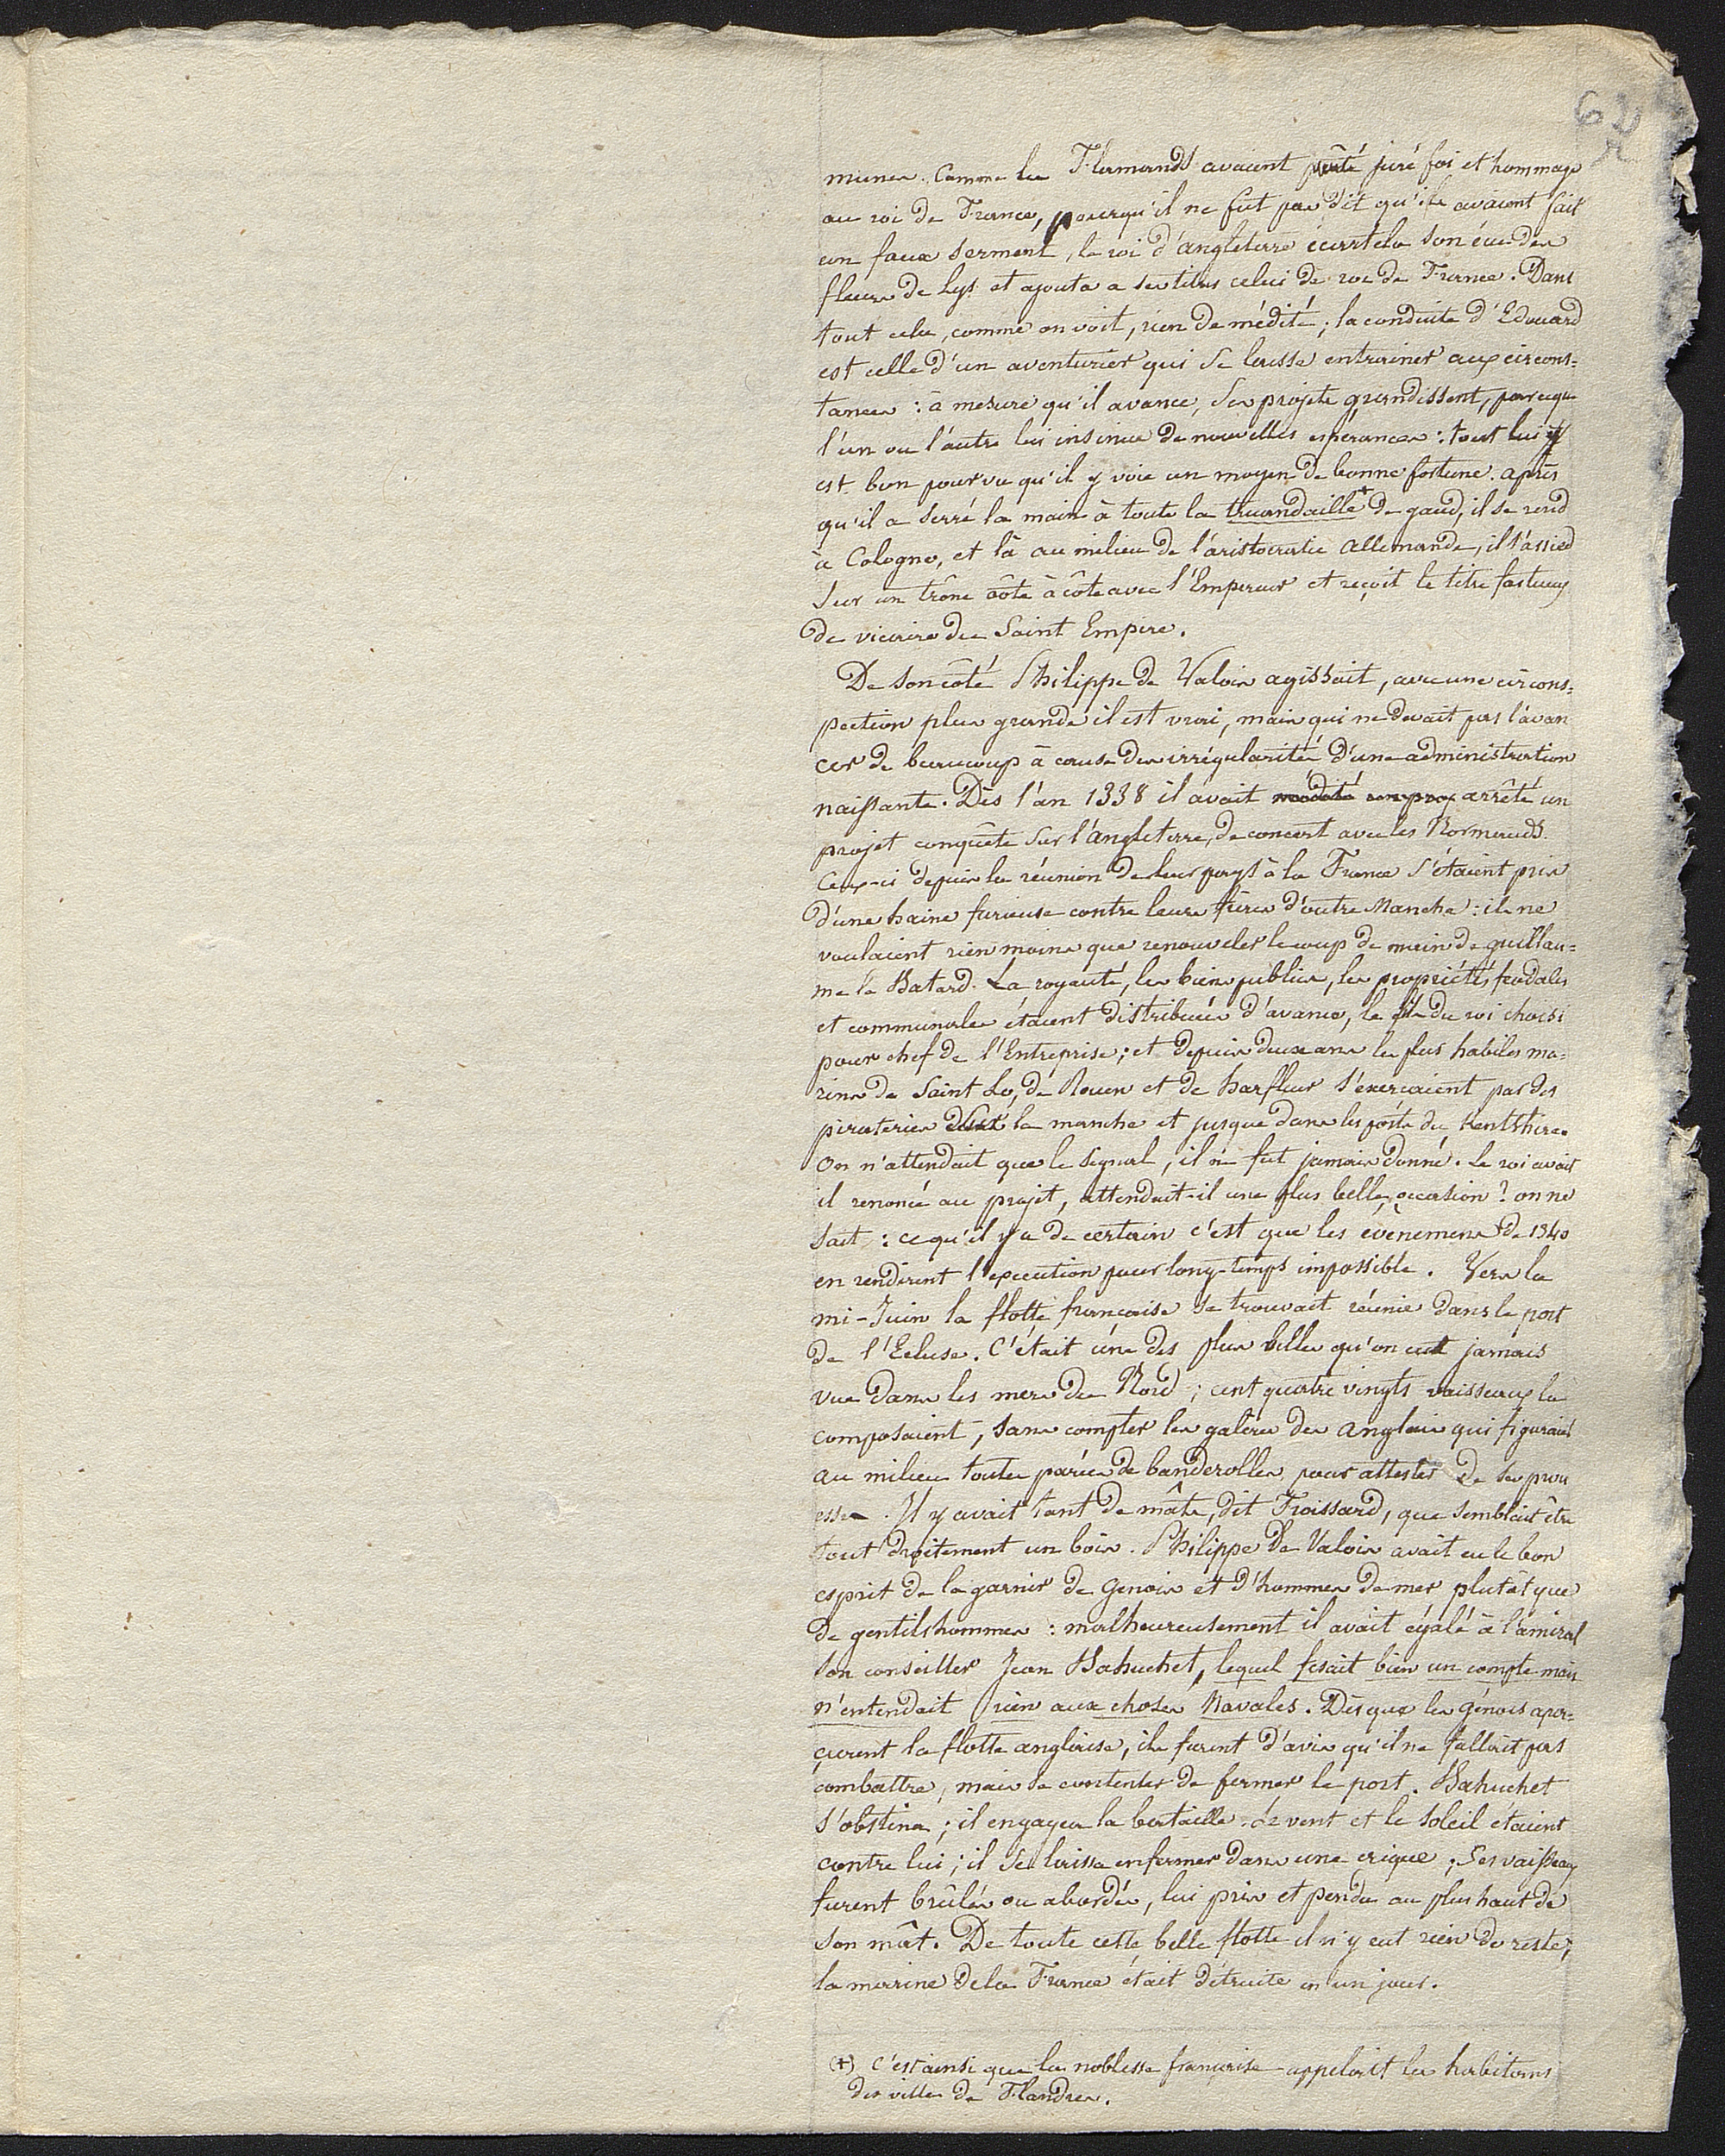 62
munes. Comme les Flamands avaient juré foi et hommage
au roi de France, pour qu'il ne fut pas dit qu'ils avaient fait
un faux serment, le roi d'angleterre écartela son écu des
fleurs de Lys et ajouta a ses titres celui de roi de France. Dans
tout cela, comme on voit, rien de médité; la conduite d'Edouard
est celle d'un aventurier qui se laisse entrainer aux circons=
tances : à mesure qu'il avance, ses projets grandissent, parceque
l'un ou l'autre lui insinue de nouvelles espérances : tout lui
est bon pourvu qu'il y voie un moyen de bonne fortune. après
qu'il a serré la main à toute la truandaille+ de gand, il se rend
à Cologne, et là au milieu de l'aristocratie allemande, il s'assied
sur un trône côte à côte avec l'Empereur et reçoit le titre fastueux
de vicaire du Saint Empire.
De son côté Philippe de Valois agissait, avec une circons=
pection plus grande il est vrai, mais qui ne devait pas l'avan
cer de beaucoup à cause des irrégularités d'une administration
naissante. Dès l'an 1338 il avait médité un proj arrêté un
projet conquête sur l'angleterre, de concert avec les Normands.
Ceux-ci depuis la réunion de leur pays à la France s'étaient pris
d'une haine furieuse contre leurs frères d'outre Manche : ils ne
voulaient rien moins que renouveler le coup de main de guillau=
me le Batard. La royauté, les biens publics, les propriétés féodales
et communales étaient distribuées d'avance, le fils du roi choisi
pour chef de l'Entreprise; et depuis deux ans les plus habiles ma=
rins de Saint Lo, de Rouen et de harfleur s'exerçaient par des
pirateries la manche et jusque dans les ports du Kentshire.
On n'attendait que le signal, il ne fut jamais donné. Le roi avait
il renoncé au projet, attendait-il une plus belle occasion ? on ne
sait : ce qu'il y a de certain c'est que les évènemens de 1340
en rendirent l'execution pour long-temps impossible. Vers la
mi-Juin la flotte française se trouvait réunie dans le port
de l'Ecluse. C'était une des plus belles qu'on eut jamais
vue dans les mers du Nord; cent quatre vingts vaisseaux la
composaient, sans compter les galères des anglais qui figuraient
au milieu toutes parées de banderolles pour attester de ses prou
esses. Il y avait tant de mâts, dit Froissard, que semblait être
tout droitement un bois. Philippe de Valois avait eu le bon
esprit de la garnir de Genois et d'hommes de mer plutôt que
de gentilshommes : malheureusement il avait égalé à l'amiral
son conseiller Jean Bahuchet, lequel fesait bien un compte mais
n'entendait rien aux choses Navales. Dès que les génois aper=
çurent la flotte anglaise, ils furent d'avis qu'il ne fallait pas
combattre, mais se contenter de fermer le port. Bahuchet
s'obstina; il engagea la bataille. Le vent et le soleil étaient
contre lui; il se laissa enfermer dans une crique; Ses vaisseaux
furent brûlés ou abordés, lui pris et pendu au plus haut de
son mât. De toute cette belle flotte il n'y eut rien de reste;
la marine de la France était détruite en un jour.
(+) c'est ainsi que la noblesse française appelait les habitans
des villes de Flandres.